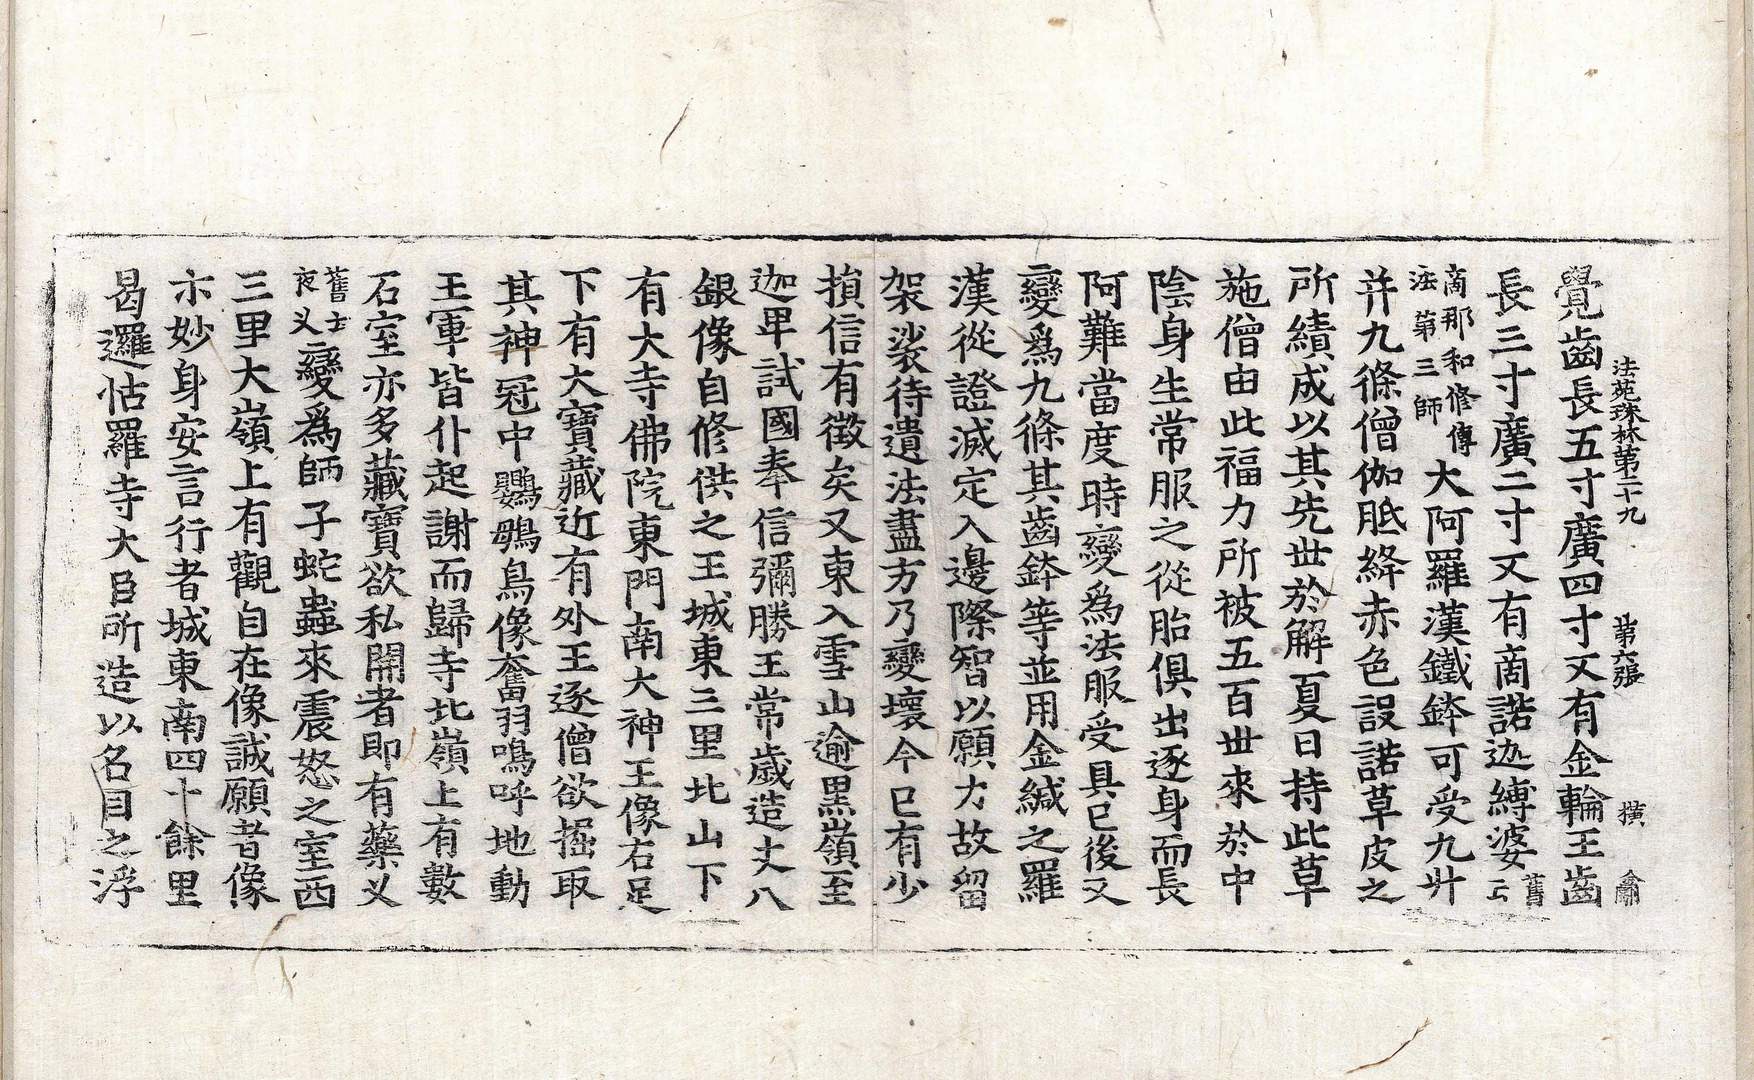 法苑珠林第二十九　第六張　橫　禽
覺齒長五寸廣四寸又有金輪王齒
長三寸廣二寸又有商諾迦縛婆舊云
商那和修傳法第三師大阿羅漢鐵鉢可受九升
并九條僧伽胝絳赤色設諾草皮之
所績成以其先世於解夏日持此草
施僧由此福力所被五百世來於中
陰身生常服之從胎俱出逐身而長
阿難當度時變爲法服受具已後又
變爲九條其齒鉢等並用金緘之羅
漢從證滅定入邊際智以願力故留
袈裟待遺法盡方乃變壞今已有少
損信有徵矣又東入雪山逾黑嶺至
迦畢試國奉信彌勝王常歲造丈八
銀像自修供之王城東三里北山下
有大寺佛院東門南大神王像右足
下有大寶藏近有外王逐僧欲掘取
其神冠中鸚鵡鳥像奮羽鳴呼地動
王軍皆仆起謝而歸寺北嶺上有數
石室亦多藏寶欲私開者即有藥叉
舊士夜叉變爲師子蛇蟲來震怒之室西
三里大嶺上有觀自在像誠願者像
示妙身安言行者城東南四十餘里
曷邏怙羅寺大臣所造以名目之浮